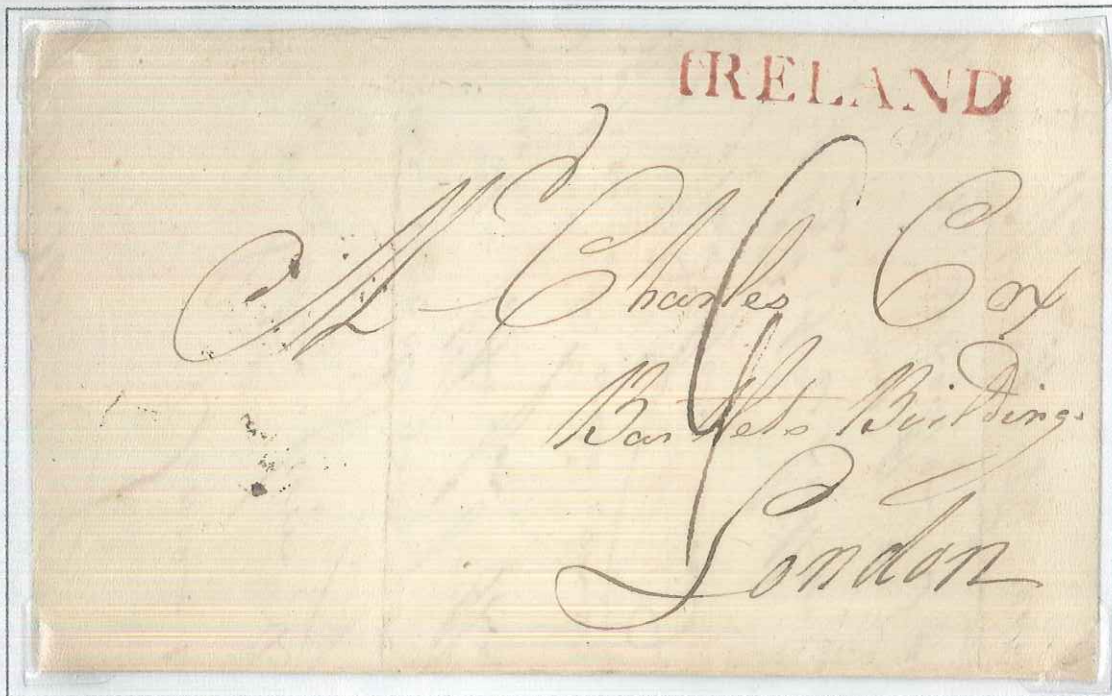 IRELAND
Mr Charles Cox
Bartlets Buildings
London